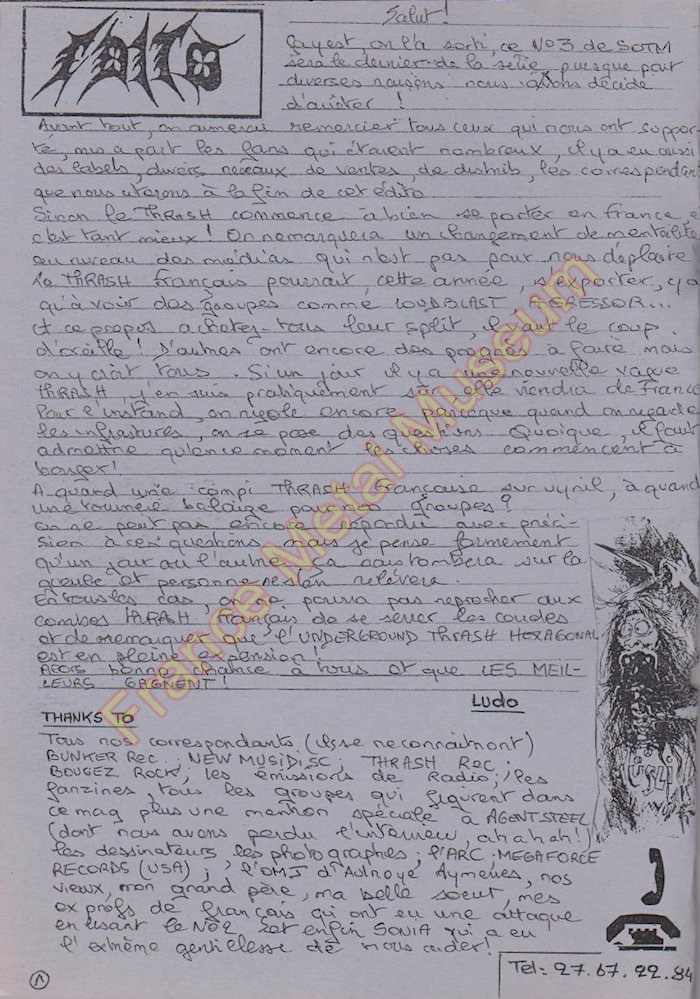 EDITO
Salut!
Ca y est, on l'a sorti, ce No3 de SOTM
sera le dernier de la série, puisque pour
diverses raisons nous avons décidé
d'arrêter !
Avant tout, on aimerai remercier tous ceux qui nous ont suppor-
té, mis a part les fans qui étaient nombreux, il y a eu aussi
des labels, divers réseaux de ventes, de distrib, les correspondants
que nous citerons à la fin de cet édito
Sinon le THRASH commence à bien se porter en france,
c'est tant mieux! On remarquera un changement de mentalité
au niveau des médias qui n'est pas pour nous déplaire
Le THRASH français pourrait, cette année, s'exporter, y a
qu'à voir des groupes comme LOUDBLAST AGRESSOR...
et a ce propos achetez tous leur split, il vaut le coup
d'oreille! D'autres ont encore des progrès à faire mais
on y croit tous. Si un jour il y a une nouvelle vague
THRASH, j'en suis pratiquement sûr elle viendra de France
Pour l'instant, on rigole encore parceque quand on regarde
les infrastures, on se pose des questions. Quoique, il faut
admettre qu'en ce moment les choses commencent à
bouger!
A quand une compi THRASH Française sur vynil, à quand
une tournée balaize pour nos groupes?
on ne peut pas encore répondre avec préci-
sion à ces questions mais je pense fermement
qu'un jour ou l'autre ça nous tombera sur la
gueule et personne ne s'en relèvera.
En tous les cas, on ne pourra pas reprocher aux
combos THRASH français de se serrer les coudes
et de remarquer que l'UNDERGROUND THRASH HEXAGONAL
est en pleine expansion!
ALORS bonne chance à tous et que LES MEIL-
LEURS GAGNENT!
Ludo
THANKS TO
Tous nos correspondants (ils se reconnaitront)
BUNKER Rec. ; NEW MUSIDISC ; THRASH Rec ;
BOUGEZ ROCK ; les émissions de Radio ; les
fanzines, tous les groupes qui figurent dans
ce mag plus une mention spéciale à AGENT STEEL
(dont nous avons perdu l'interview, ahahah!)
les dessinateurs, les photographes ; l'ARC ; MEGAFORCE
RECORDS (USA) ; l'OMJ d'Aulnoye Aymeries, nos
vieux, mon grand père, ma belle soeur, mes
ex profs de français qui ont eu une attaque
en lisant le No2 et enfin SONIA qui a eu
l'extrême gentillesse de nous aider!
UGLY
Tel: 27.67.22.84
1
France Metal Museum